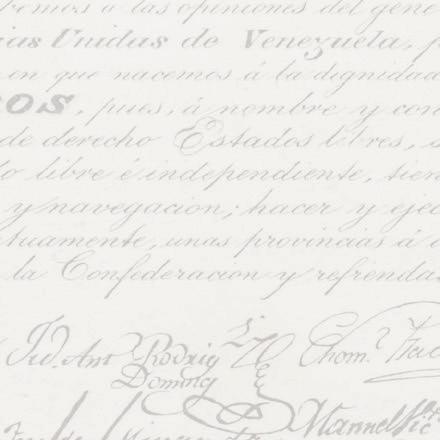 remos a las opiniones del géne
ias Unidas de Venezuela, p
en que nacemos á la dignidad
OS, pues, á nombre y con
de derecho Estados libres, s
do libre é independiente, tien
y navegacion; hacer y ejec
tuamente, unas provincias á
la Confederacion y refrenda
Rodrig
Doming
Manuel